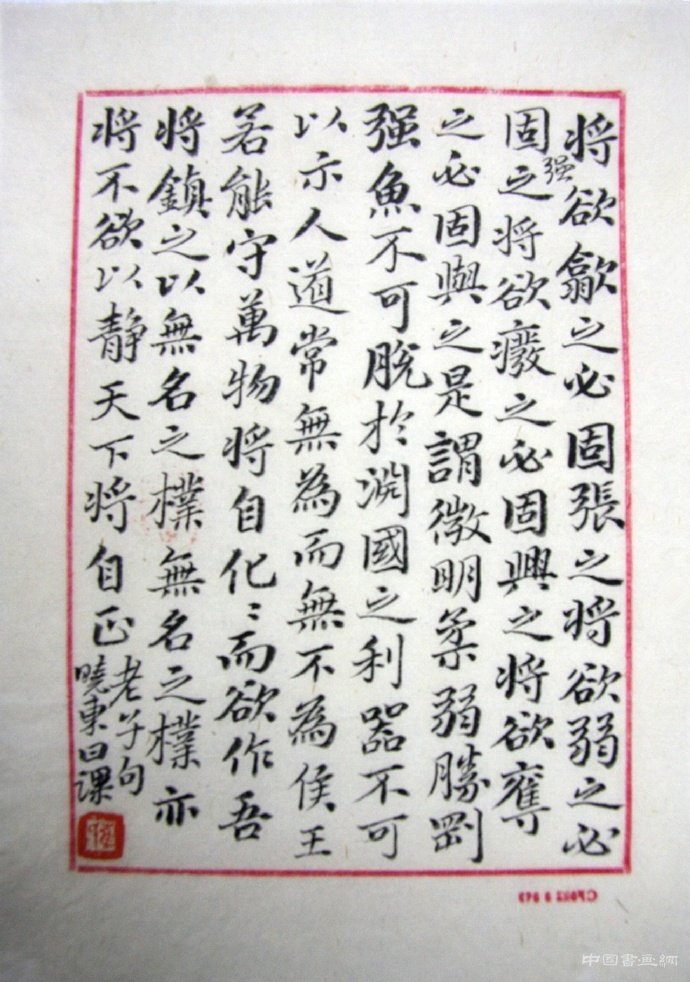 将欲歙之必固張之将欲弱之必
固强之将欲癈之必固興之将欲奪
之必固與之是謂微明柔弱勝剛
强魚不可脫於淵國之利器不可
以示人道常無為而無不為侯王
若能守萬物将自化〻而欲作吾
将鎮之以無名之樸無名之樸亦
将不欲以静天下将自正
老子句
曉東日課
中国書画網